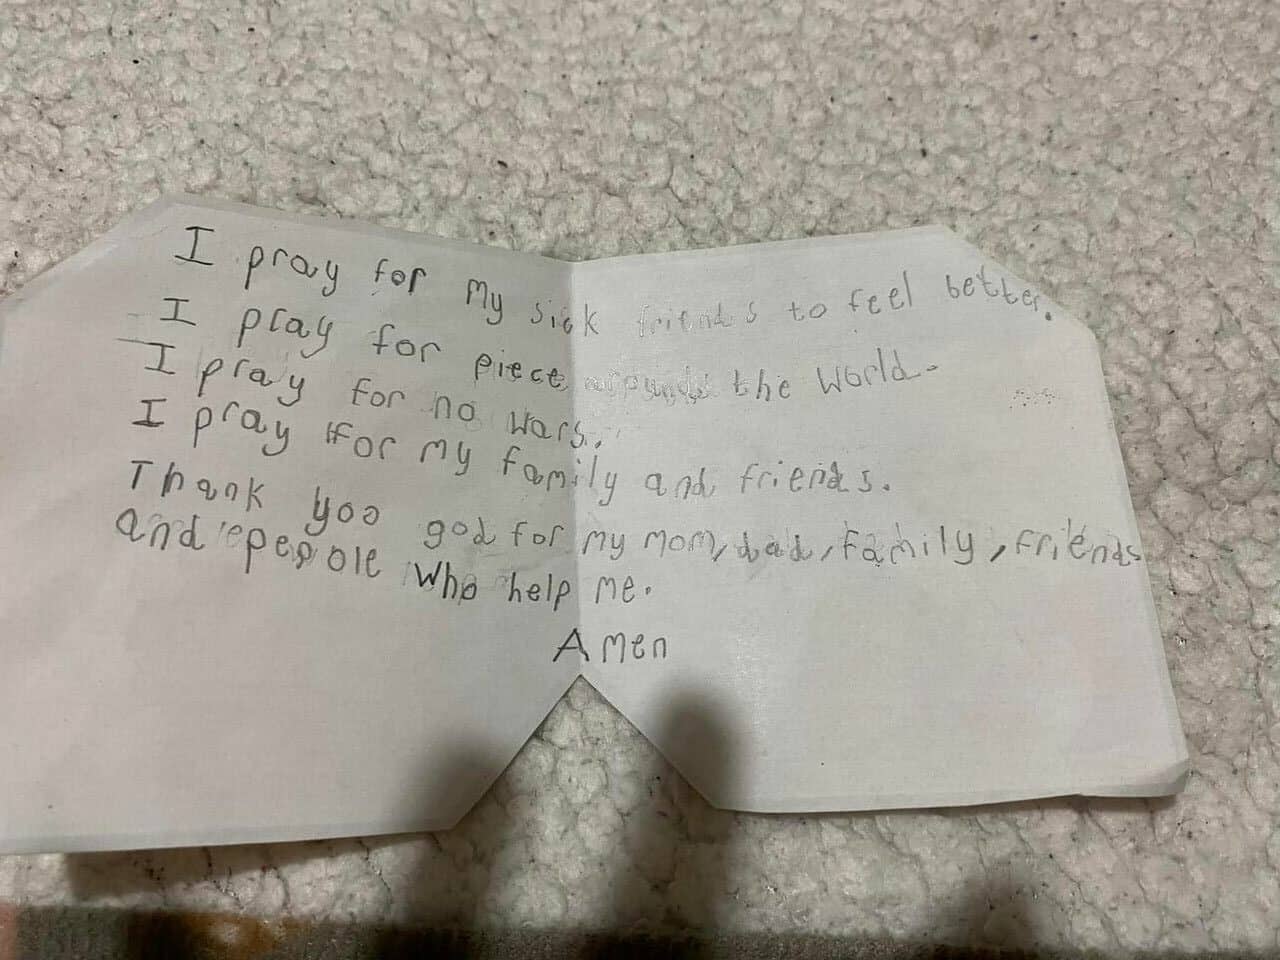 I pray for my sick friends to feel better.
I pray for piece around the world.
I pray for no wars.
I pray for my family and friends.
Thank yoo god for my mom, dad, family, friends
and people who help me.
Amen